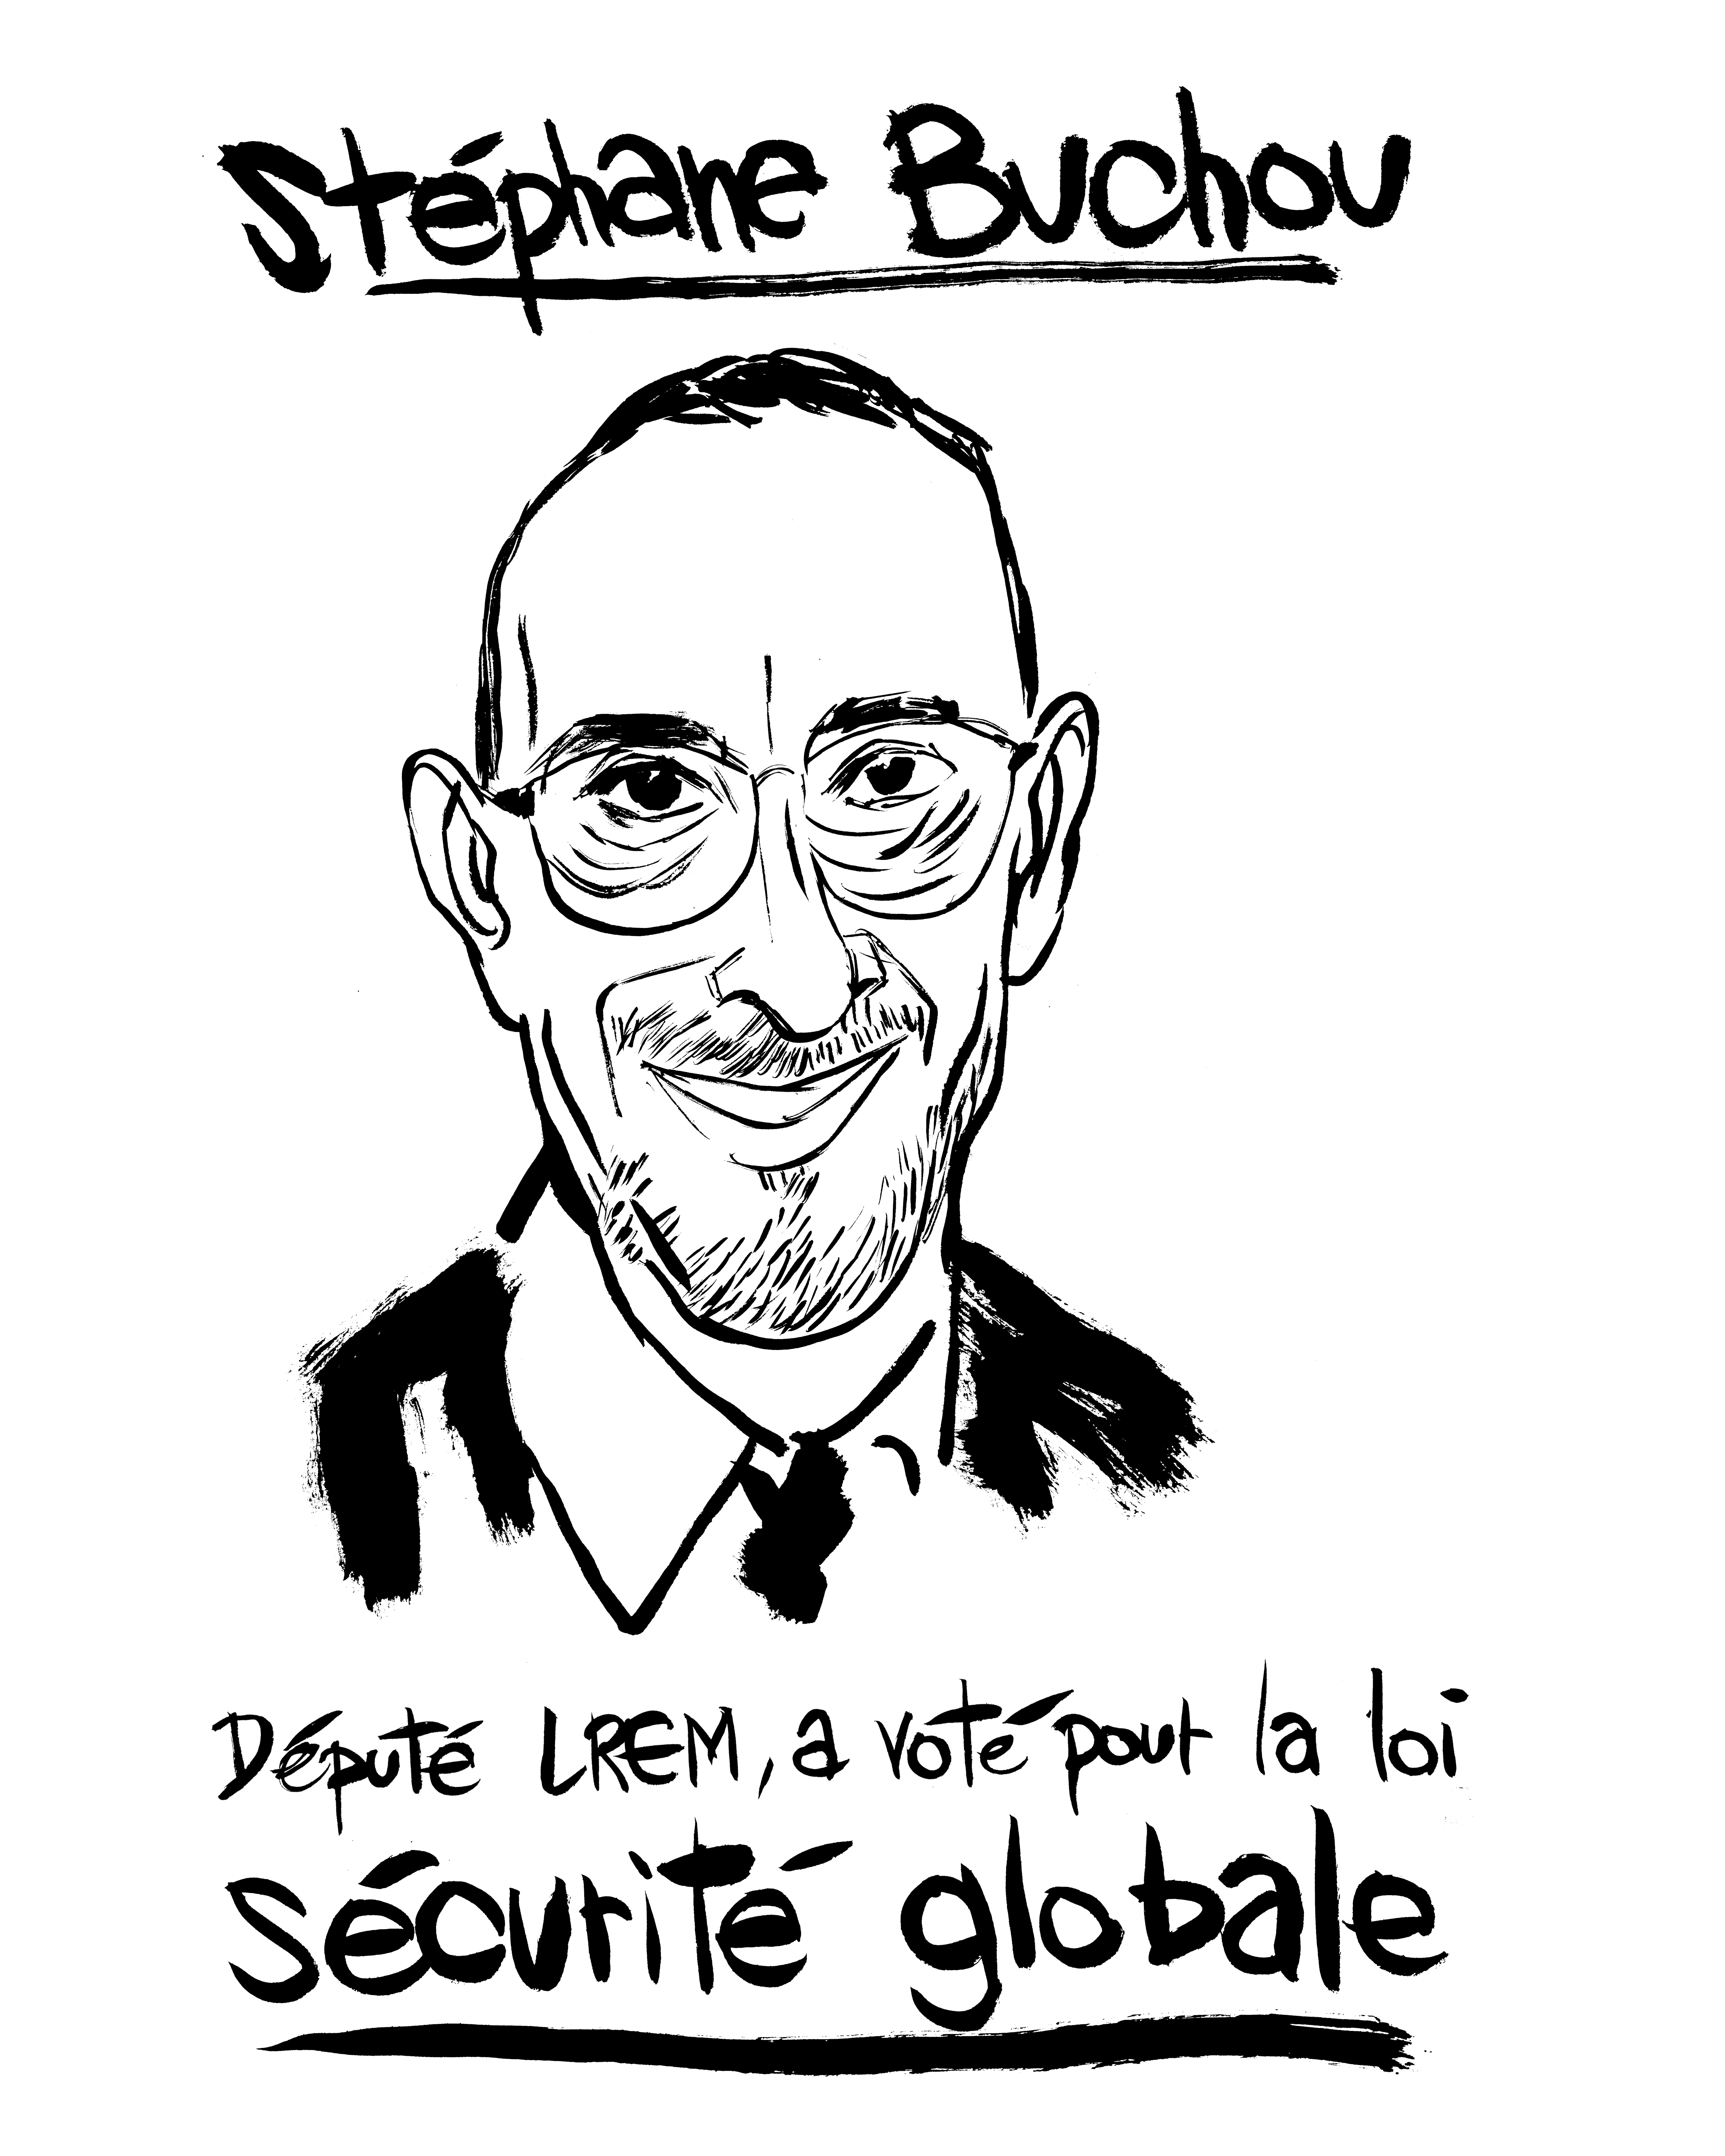 Stéphane Buchou
Député LREM, a voté pour la loi
sécurité globale